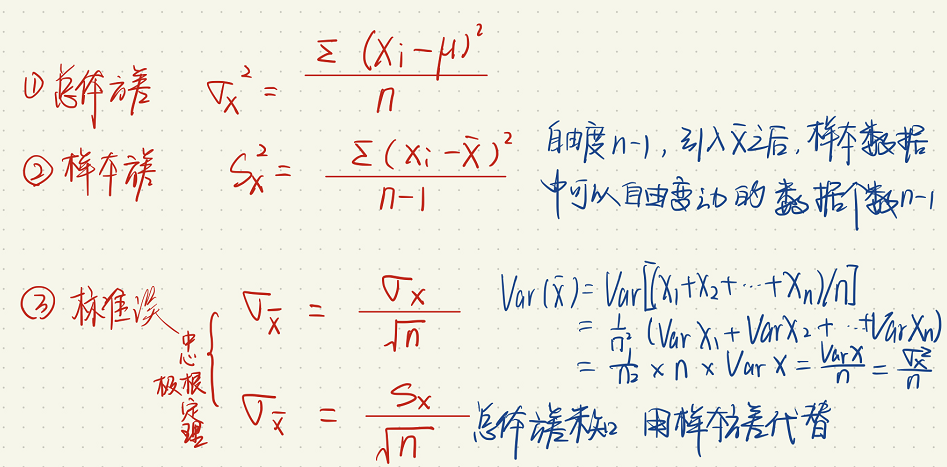 ①总体方差 σx² = Σ(Xi-μ)² / n
②样本方差 Sx² = Σ(Xi-X̄)² / n-1
自由度n-1,引入X̄之后,样本数据
中可以自由变动的数据个数n-1
③标准误 σx̄ = σx / √n
中心极根定理
σx̄ = Sx / √n
Var(X̄) = Var[(X₁+X₂+…+Xn)/n]
= 1/n² (Var X₁ + Var X₂ + … + Var Xn)
= 1/n² × n × Var X = Var X / n = σx² / n
总体方差未知 用样本方差代替